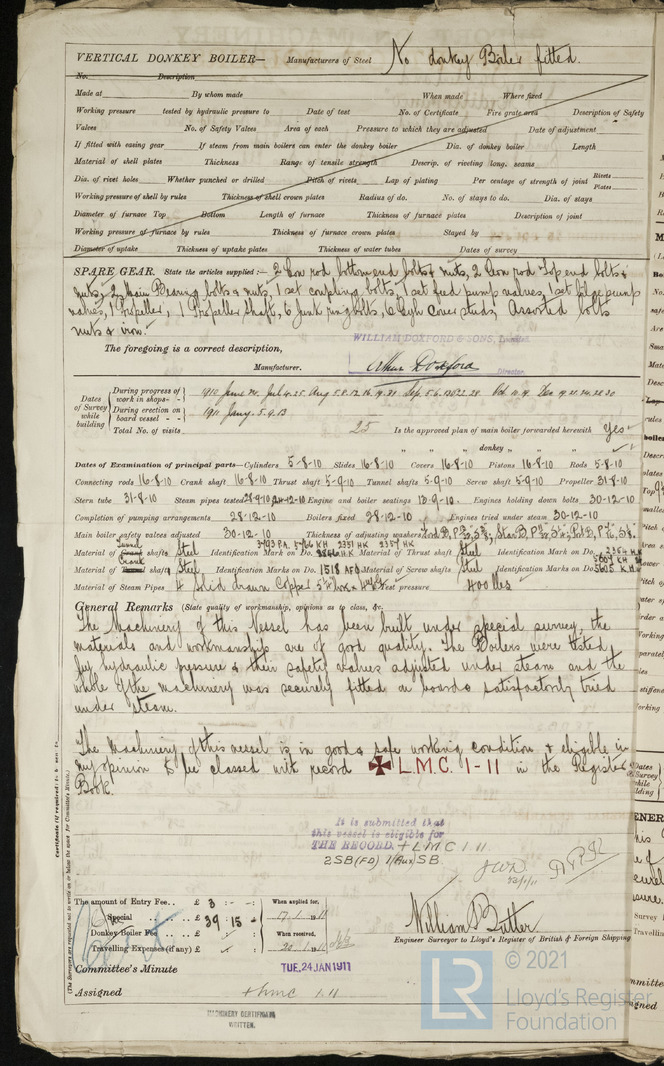 VERTICAL DONKEY BOILER— Manufacturers of Steel No donkey Boiler fitted.
No. Description
Made at By whom made When made Where fixed
Working pressure tested by hydraulic pressure to Date of test No. of Certificate Fire grate area Description of Safety
Valves No. of Safety Valves Area of each Pressure to which they are adjusted Date of adjustment
If fitted with easing gear If steam from main boilers can enter the donkey boiler Dia. of donkey boiler Length
Material of shell plates Thickness Range of tensile strength Descrip. of riveting long. seams
Dia. of rivet holes Whether punched or drilled Pitch of rivets Lap of plating Per centage of strength of joint Rivets Plates
Working pressure of shell by rules Thickness of shell crown plates Radius of do. No. of stays to do. Dia. of stays
Diameter of furnace Top Bottom Length of furnace Thickness of furnace plates Description of joint
Working pressure of furnace by rules Thickness of furnace crown plates Stayed by
Diameter of uptake Thickness of uptake plates Thickness of water tubes Dates of survey
SPARE GEAR. State the articles supplied:— 2 Con rod bottom end bolts & nuts, 2 Con rod Top end bolts &
nuts, 2 Main Bearing bolts & nuts, 1 set coupling bolts, 1 set feed pump valves, 1 set bilge pump
valves, 1 Propeller, 1 Propeller Shaft, 6 Junk ring bolts, 6 Cyl: Cover studs, Assorted bolts
nuts & iron.
WILLIAM DOXFORD & SONS, Limited.
The foregoing is a correct description,
Manufacturer. Arthur Doxford Director.
Dates of Survey while building
During progress of work in shops - - 1910 June
During erection on board vessel - - 1911 Jany. 5. 9. 13
Total No. of visits 25 Is the approved plan of main boiler forwarded herewith Yes
" " " donkey " " "
Dates of Examination of principal parts—Cylinders 5-8-10 Slides 16-8-10 Covers 16-8-10 Pistons 16-8-10 Rods 5-8-10
Connecting rods 16-8-10 Crank shaft 16-8-10 Thrust shaft 5-9-10 Tunnel shafts 5-9-10 Screw shaft 5-9-10 Propeller 31-8-10
Stern tube 31-8-10 Steam pipes tested 28-9-10, 24-12-10 Engine and boiler seatings 13-9-10 Engines holding down bolts 30-12-10
Completion of pumping arrangements 28-12-10 Boilers fixed 28-12-10 Engines tried under steam 30-12-10
Main boiler safety valves adjusted 30-12-10 Thickness of adjusting washers
Material of Crank Tunnel shafts Steel Identification Mark on Do. Material of Thrust shaft Steel Identification Mark on Do. 2364 H.K
Material of Tunnel Crank shafts Steel Identification Marks on Do. 1518 AFD Material of Screw shafts Steel Identification Marks on Do. 5605 K.H
Material of Steam Pipes 4 Solid drawn Copper Test pressure 400 lbs
General Remarks (State quality of workmanship, opinions as to class, &c.
The Machinery of this Vessel has been built under special survey, the
materials and workmanship are of good quality. The Boilers were tested
by hydraulic pressure & their safety valves adjusted under steam and the
whole of the machinery was securely fitted on board & satisfactorily tried
under steam.
The Machinery of this vessel is in good & safe working condition & eligible in
my opinion to be classed with record ✠ L.M.C. 1-11 in the Register
Book.
It is submitted that
this vessel is eligible for
THE RECORD. + LMC 1 11
2SB (FD) 1(Aux) SB.
The amount of Entry Fee.. £ 3 : - : - When applied for,
Special .. .. £ 39 : 15 : - 17.1.1911
Donkey Boiler Fee .. .. £ When received,
Travelling Expenses (if any) £ 20.1.1911
William Butler
Engineer Surveyor to Lloyd's Register of British & Foreign Shipping
Committee's Minute TUE. 24 JAN 1911
Assigned + LMC 1 11
MACHINERY CERTIFICATE
WRITTEN.
© 2021
LR Lloyd's Register
Foundation